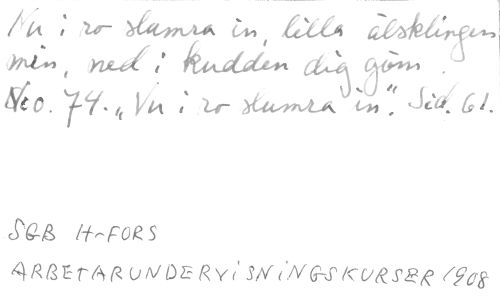 Nu i ro slumra in, lilla älsklingen
min, ned i kudden dig göm.
No. 74. „Nu i ro slumra in”. Sid. 61.
SGB H-FORS
ARBETARUNDERVISNINGSKURSER 1908